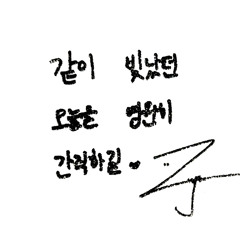 같이 빛났던
오늘날 영원히
간직하길